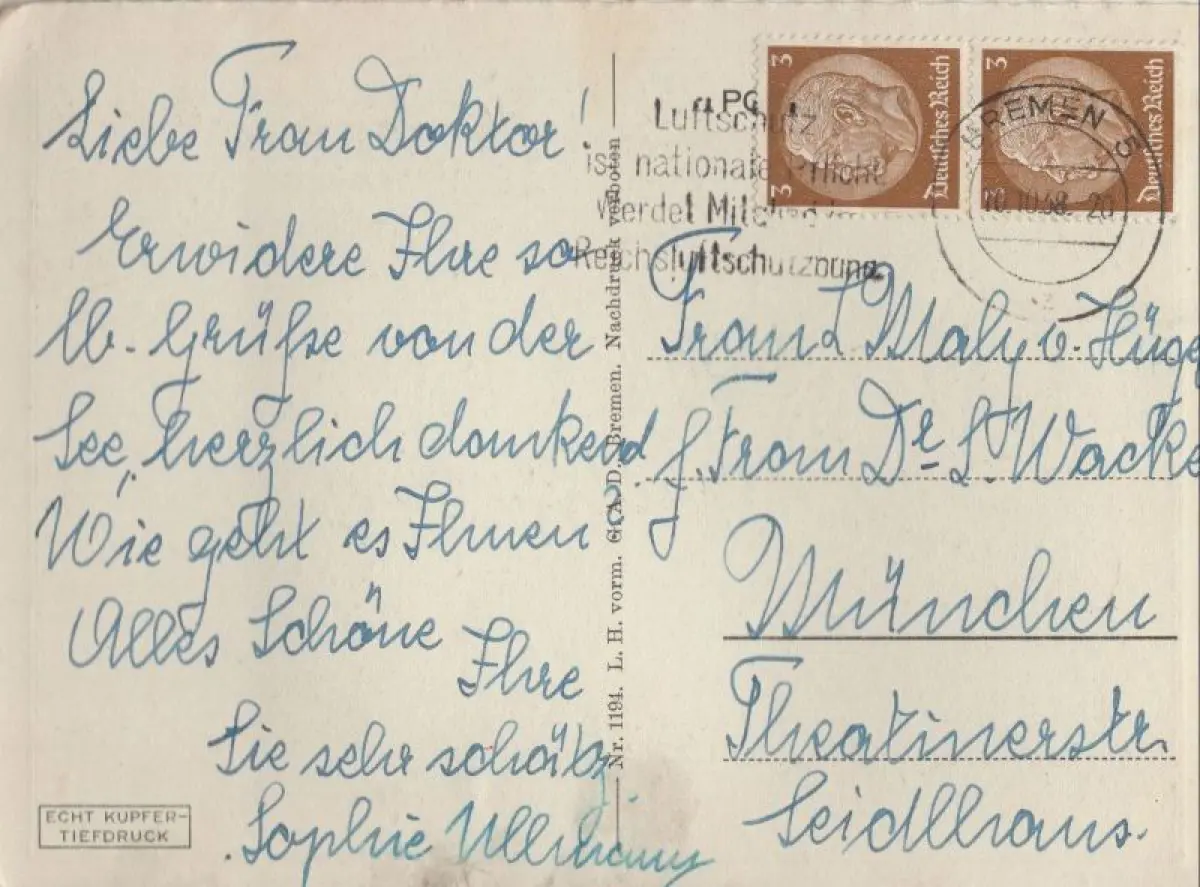 Liebe Frau Doktor!
Erwidere Ihre so
lb. Grüße von der
See, herzlich dankend.
Wie geht es Ihnen?
Alles Schöne
Ihre
Sie sehr schätz
Sophie Ullmann
ECHT KUPFER-
TIEFDRUCK
Nr. 1194. L. H. vorm. G. A. D. Bremen. Nachdruck verboten
PO
Luftschutz
ist nationale Pflicht
Werdet Mitglied im
Reichsluftschutzbund
3 Deutsches Reich 3
3 Deutsches Reich 3
BREMEN 5
10.10.38.-20
Frau L Maly v. Hügg
f. Frau Dr. L. Wacke
München
Theatinerstr.
Seidlhaus.